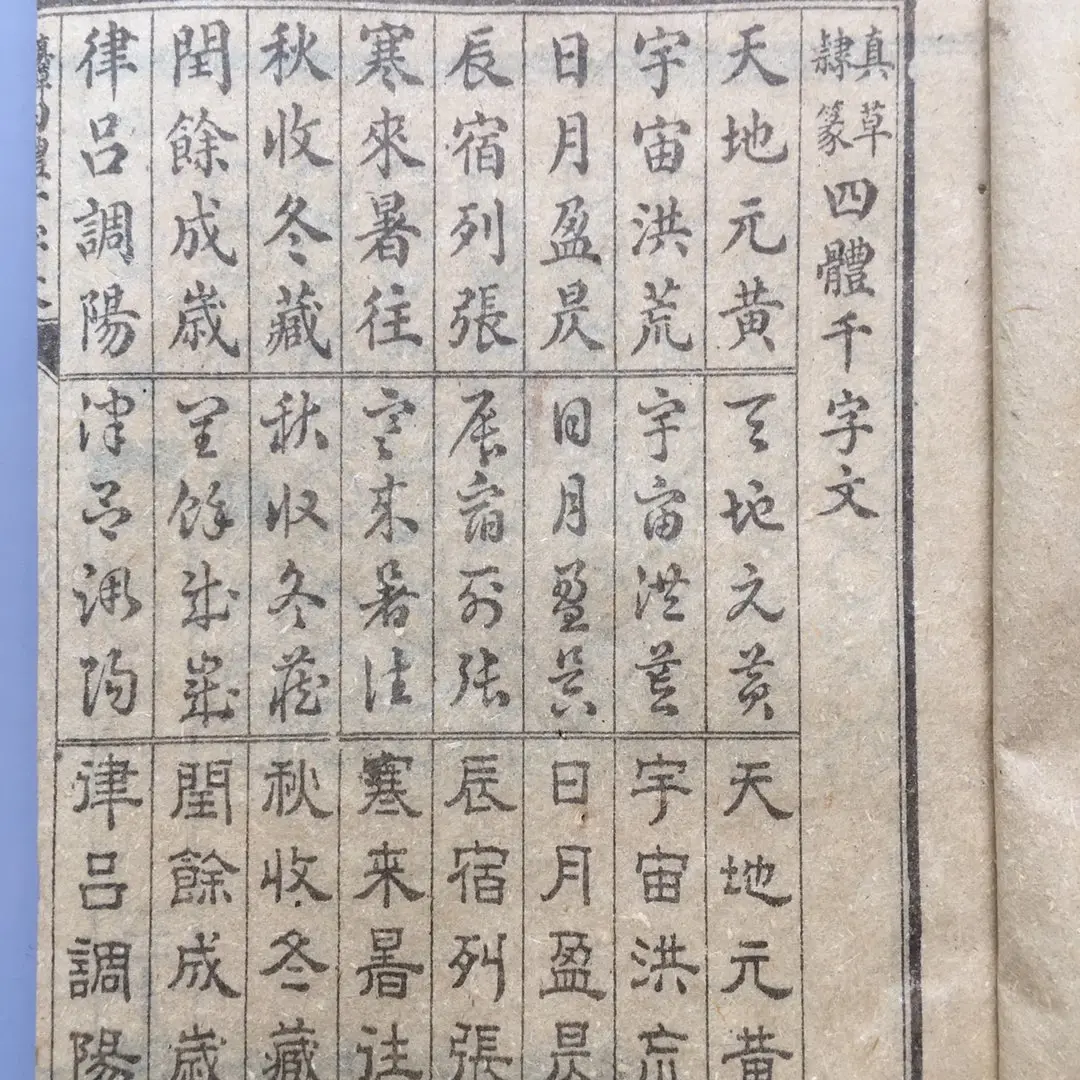 真草隸篆四體千字文
天地元黄
宇宙洪荒
日月盈昃
辰宿列張
寒來暑往
秋收冬藏
閏餘成歲
律呂調陽
天地元黄
宇宙洪荒
日月盈昃
辰宿列張
寒來暑往
秋收冬藏
閏餘成歲
律呂調陽
天地元黄
宇宙洪荒
日月盈昃
辰宿列張
寒来暑往
秋收冬藏
閏餘成歲
律呂調陽